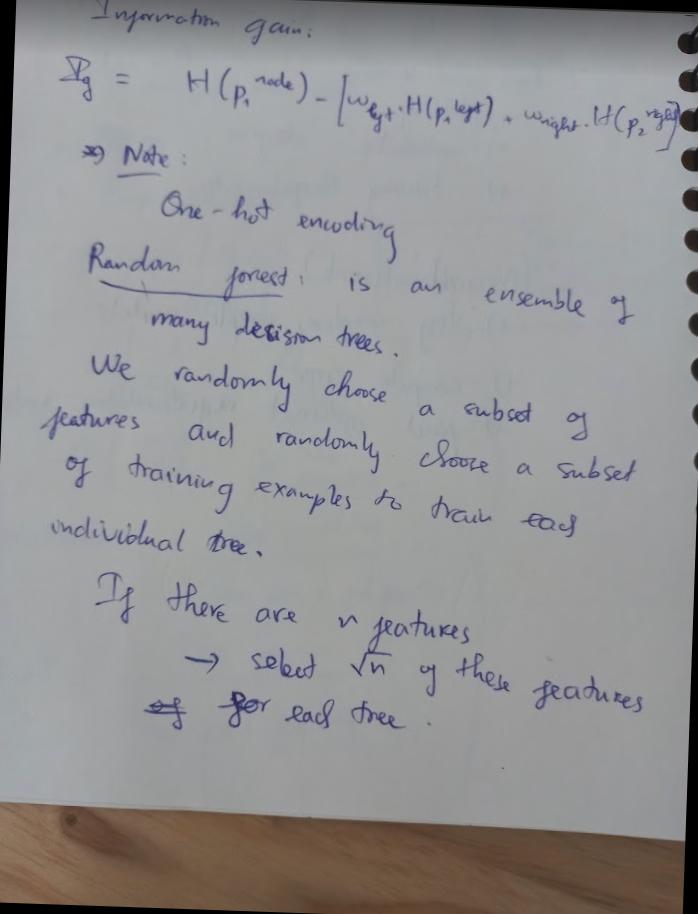 Information gain:
Ig = H(p₁^node) - [w_left · H(p₁^left) + w_right · H(p₂^right)]
=> Note:
One-hot encoding
Random forest: is an ensemble of
many decision trees.
We randomly choose a subset of
features and randomly choose a subset
of training examples to train each
individual tree.
If there are n features
→ select √n of these features
for each tree.